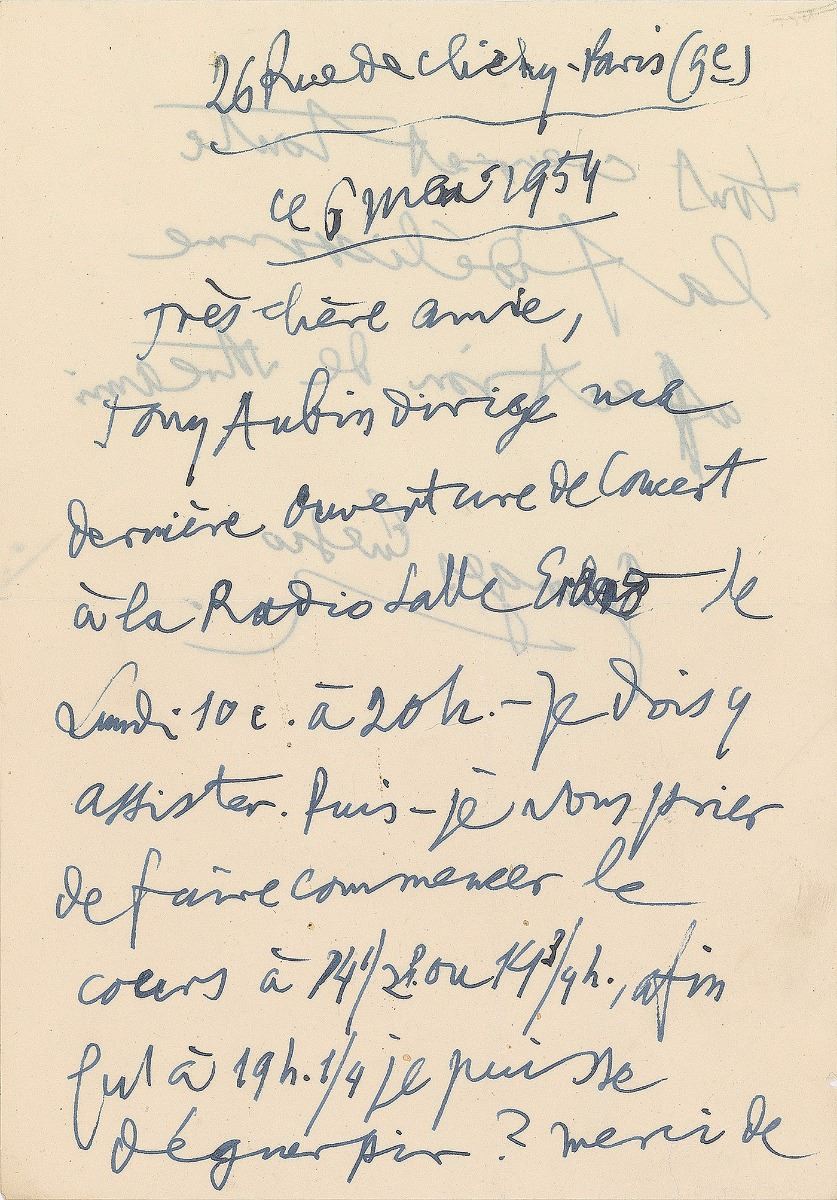 26 Rue de Clichy - Paris (9e)
ce 6 mai 1954
Très chère amie,
Tony Aubin dirige ma
dernière ouverture de Concert
à la Radio Salle Erard le
Lundi 10 c. à 20h. - Je dois y
assister. Puis-je vous prier
de faire commencer le
cours à 14 1/2 h. ou 14 3/4 h., afin
qu'à 19h. 1/4 je puisse
déguerpir ? merci de
tout coeur et toute
la fidélissime
affection de votre ami
Georges Enesco